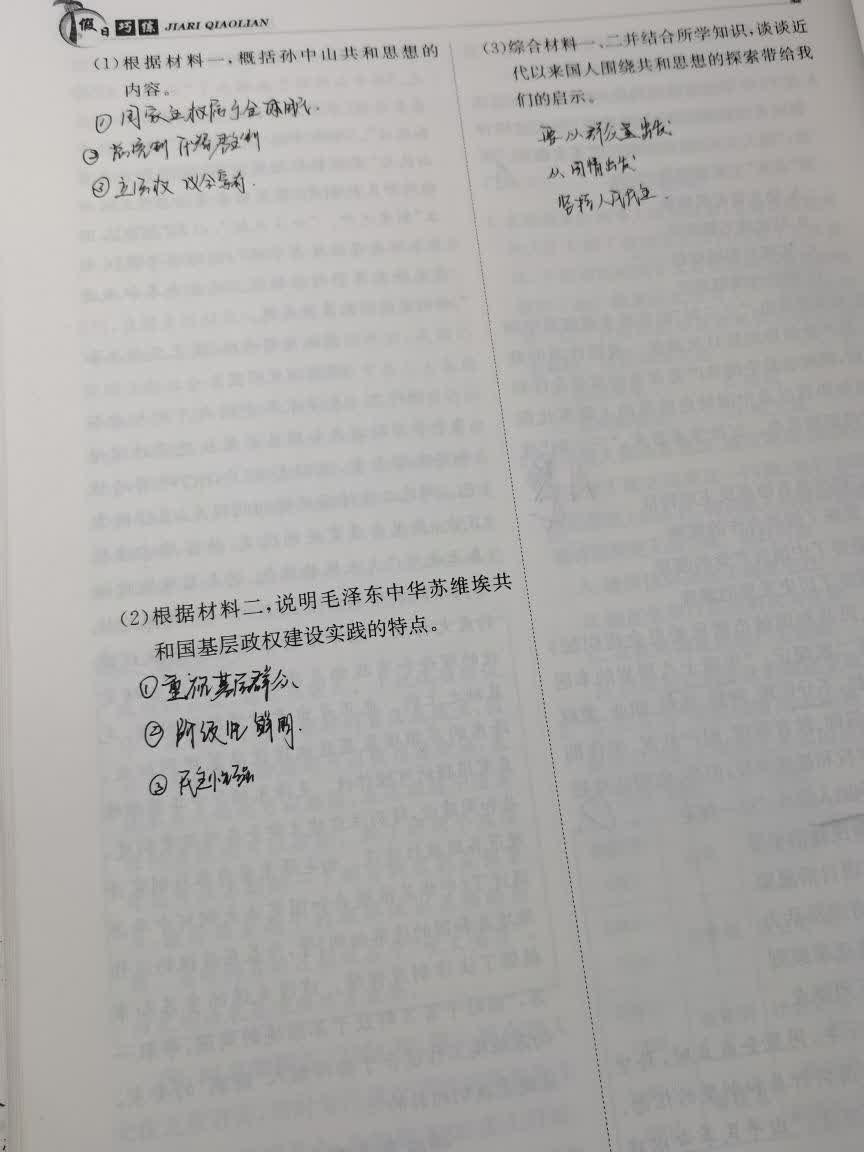 假日巧练 JIARI QIAOLIAN
(1)根据材料一,概括孙中山共和思想的
内容。
①国家主权属于全体国民.
②总统制 代替君主制
③立法权 议会享有.
(2)根据材料二,说明毛泽东中华苏维埃共
和国基层政权建设实践的特点。
①重视基层群众、
②阶级性鲜明.
③民主性强
(3)综合材料一、二并结合所学知识,谈谈近
代以来国人围绕共和思想的探索带给我
们的启示。
要从群众里出发
从国情出发
坚持人民民主.